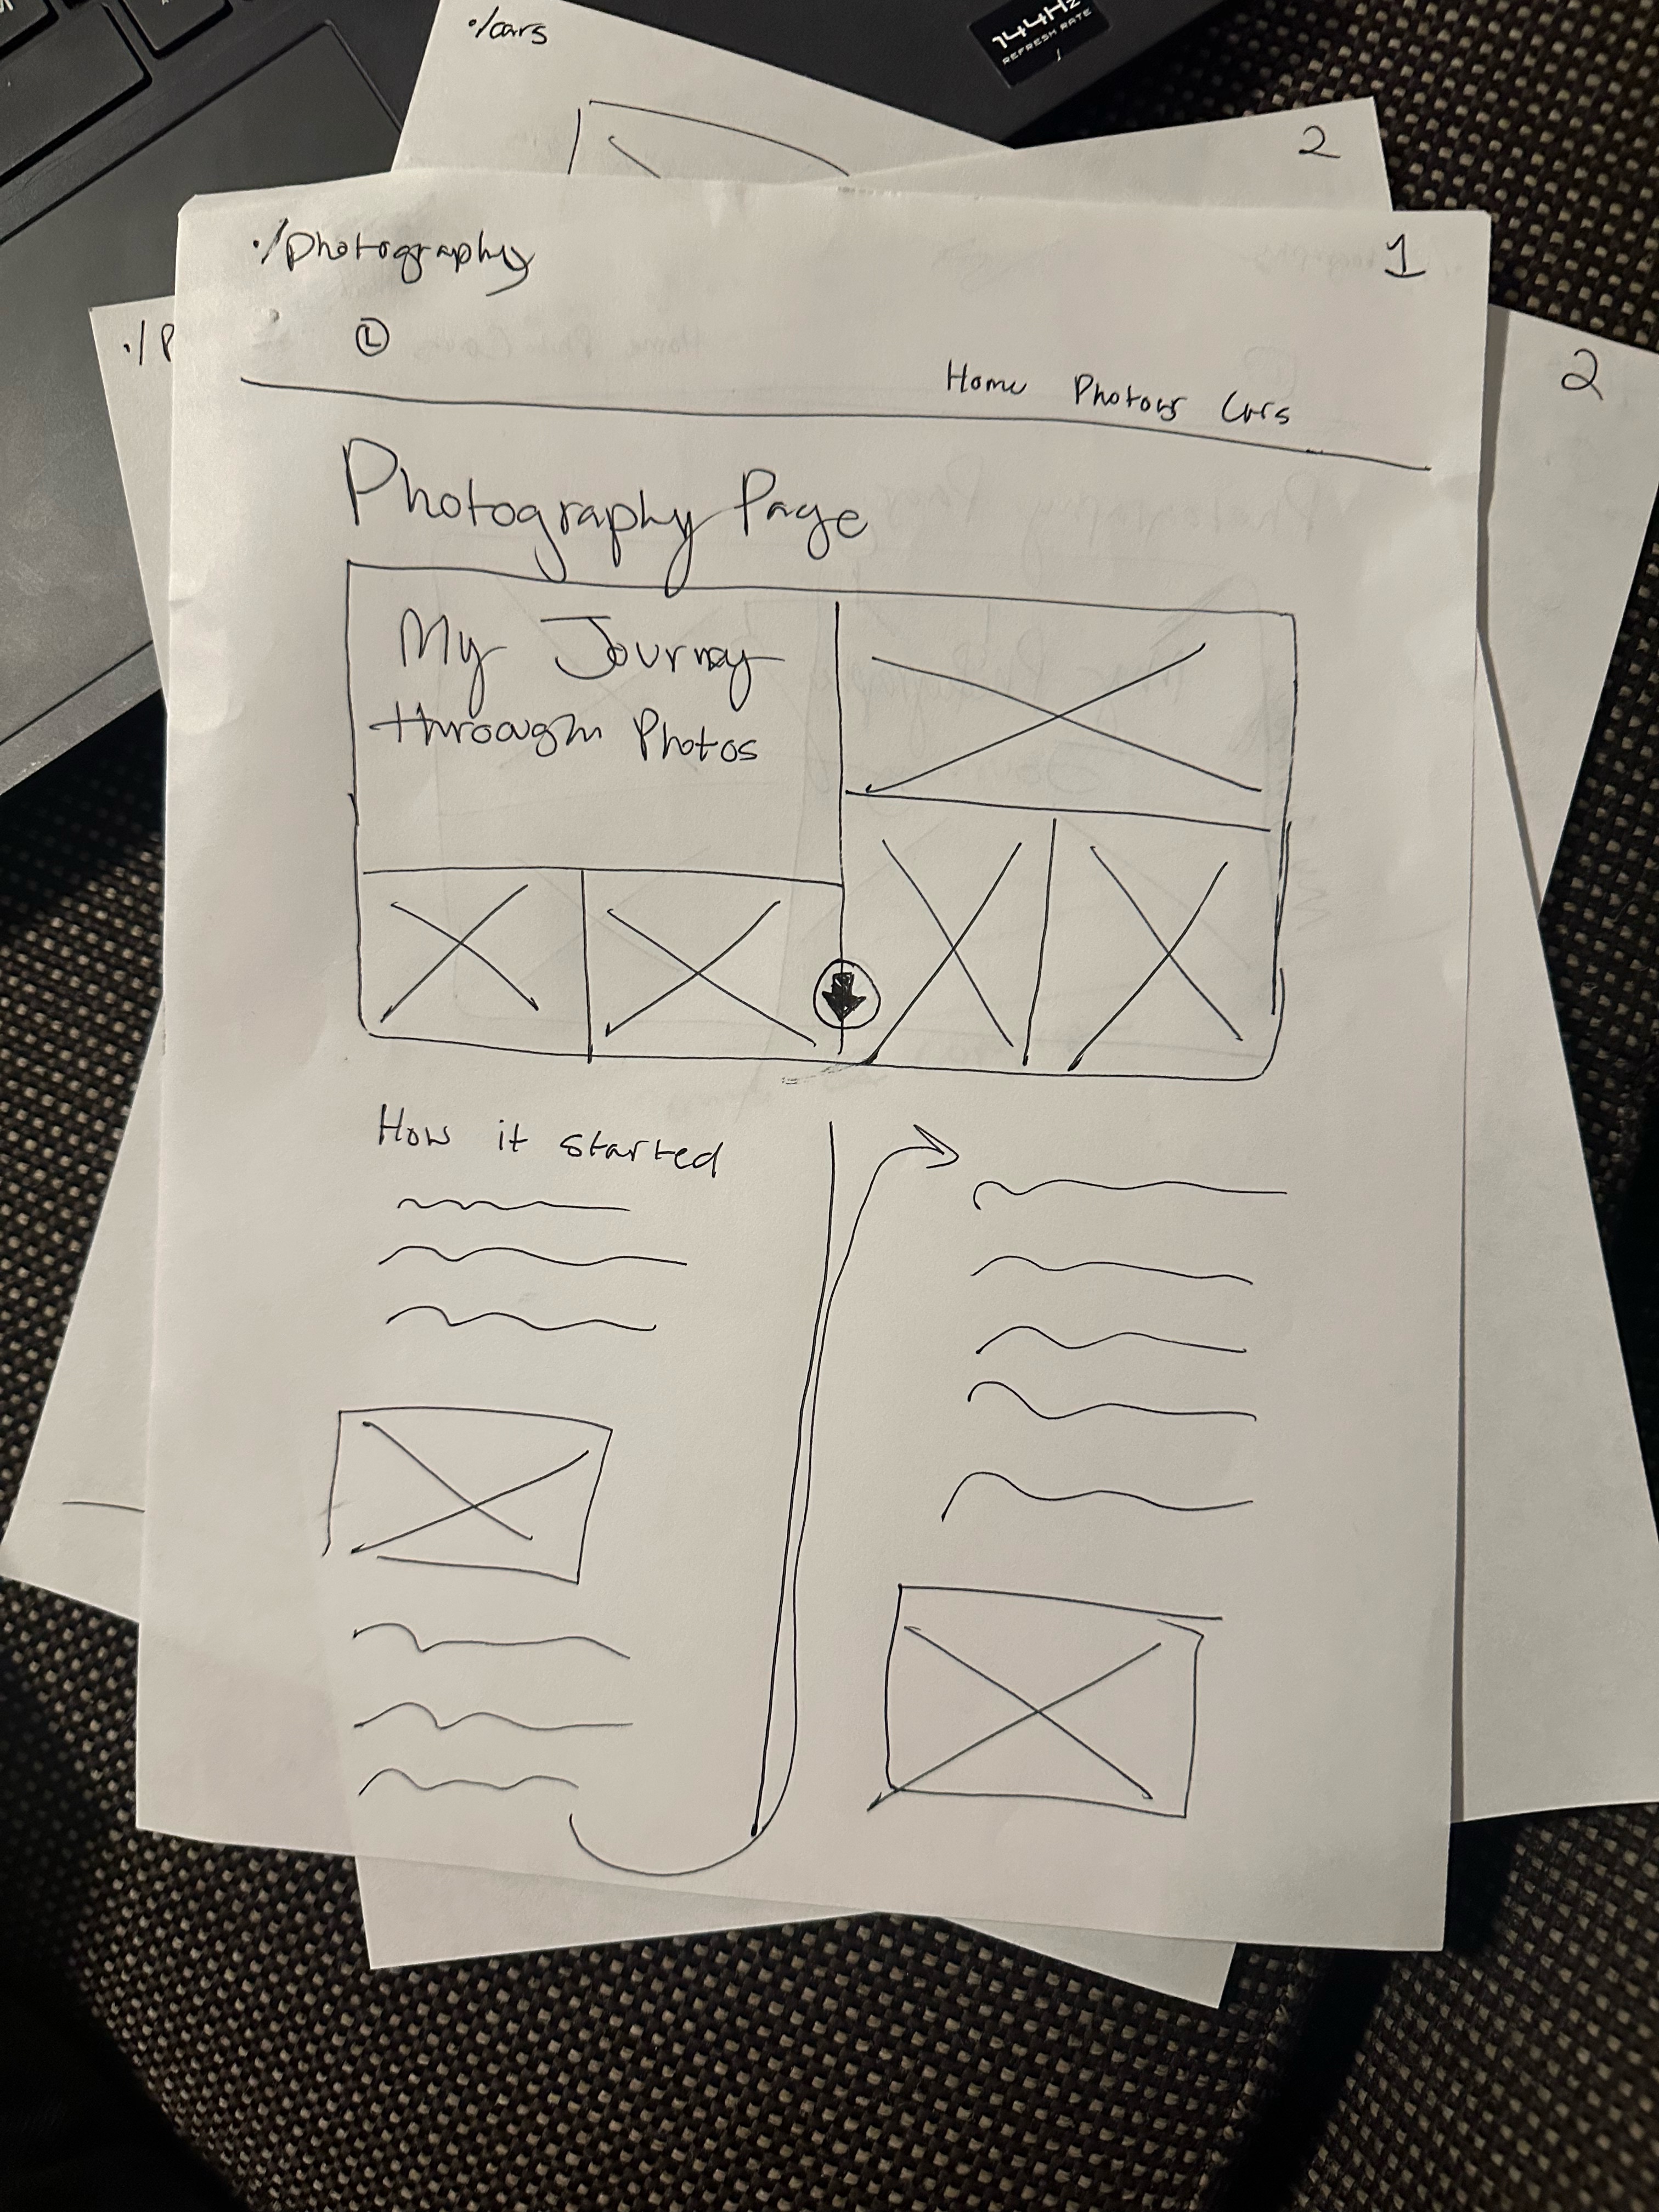 ./cars
144Hz
REFRESH RATE
2
./photography
1
./P
2
L
Home Photogr Cars
Photography Page
My Journey
through Photos
How it started